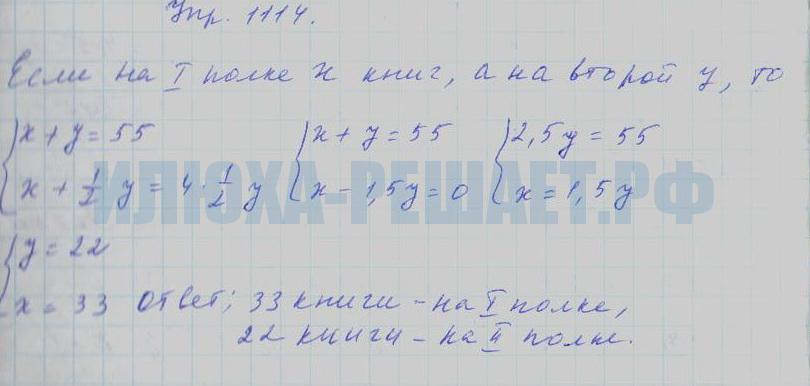 Упр. 1114.
Если на I полке x книг, а на второй y, то
{x + y = 55 {x + y = 55 {2,5y = 55
{x + 1/2 y = 4 · 1/2 y {x - 1,5y = 0 {x = 1,5y
ИЛЮХА-РЕШАЕТ.РФ
{y = 22
{x = 33 Ответ: 33 книги - на I полке,
22 книги - на II полке.